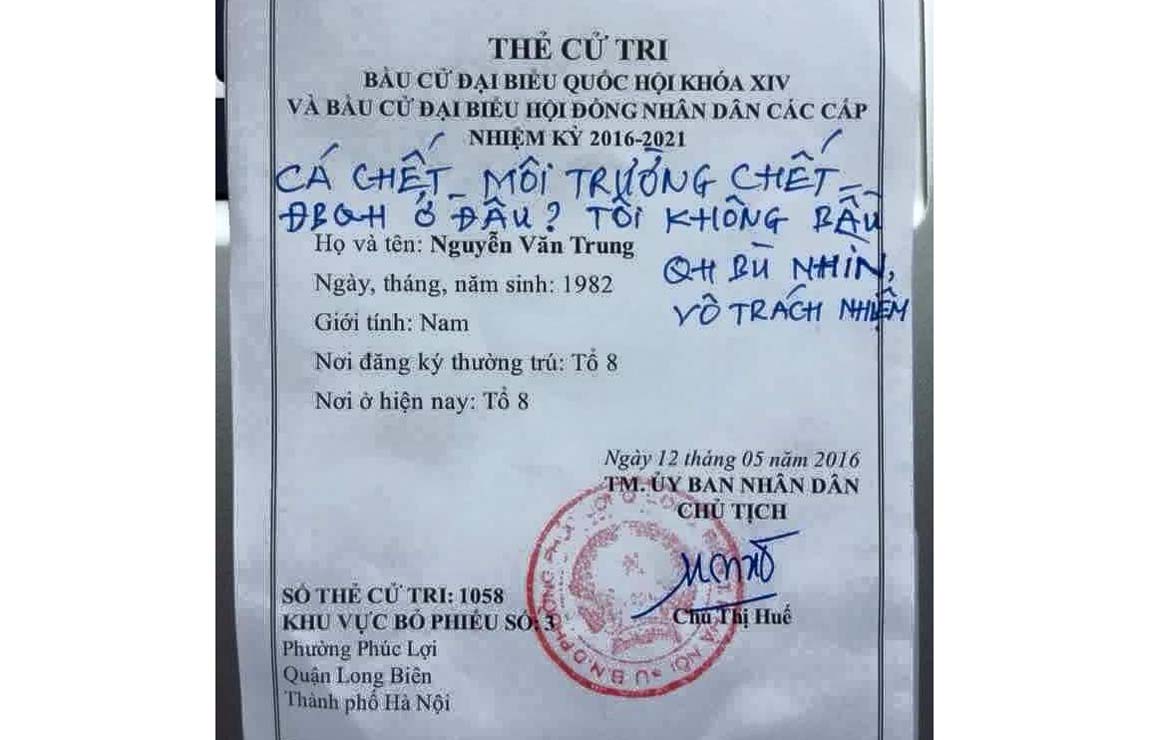 THẺ CỬ TRI
BẦU CỬ ĐẠI BIỂU QUỐC HỘI KHÓA XIV
VÀ BẦU CỬ ĐẠI BIỂU HỘI ĐỒNG NHÂN DÂN CÁC CẤP
NHIỆM KỲ 2016-2021
CÁ CHẾT_ MÔI TRƯỜNG CHẾT_
ĐBQH Ở ĐÂU? TÔI KHÔNG BẦU
QH BÙ NHÌN,
VÔ TRÁCH NHIỆM
Họ và tên: Nguyễn Văn Trung
Ngày, tháng, năm sinh: 1982
Giới tính: Nam
Nơi đăng ký thường trú: Tổ 8
Nơi ở hiện nay: Tổ 8
Ngày 12 tháng 05 năm 2016
TM. ỦY BAN NHÂN DÂN
CHỦ TỊCH
Chu Thị Huế
SỐ THẺ CỬ TRI: 1058
KHU VỰC BỎ PHIẾU SỐ: 3
Phường Phúc Lợi
Quận Long Biên
Thành phố Hà Nội